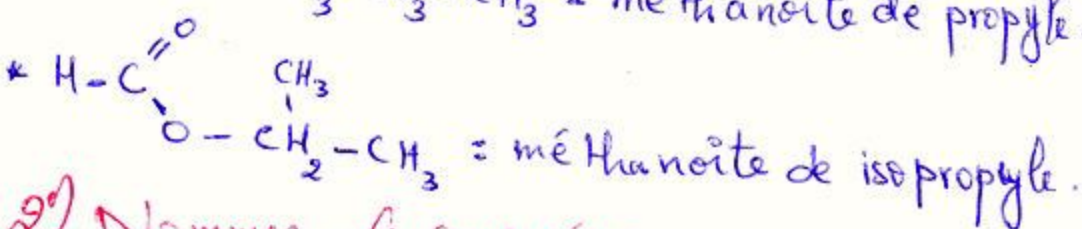 3 3 CH3 = méthanoïte de propyle
* H-C=O CH3
O - CH2 - CH3 = méthanoïte de isopropyle.
2°) Nommer